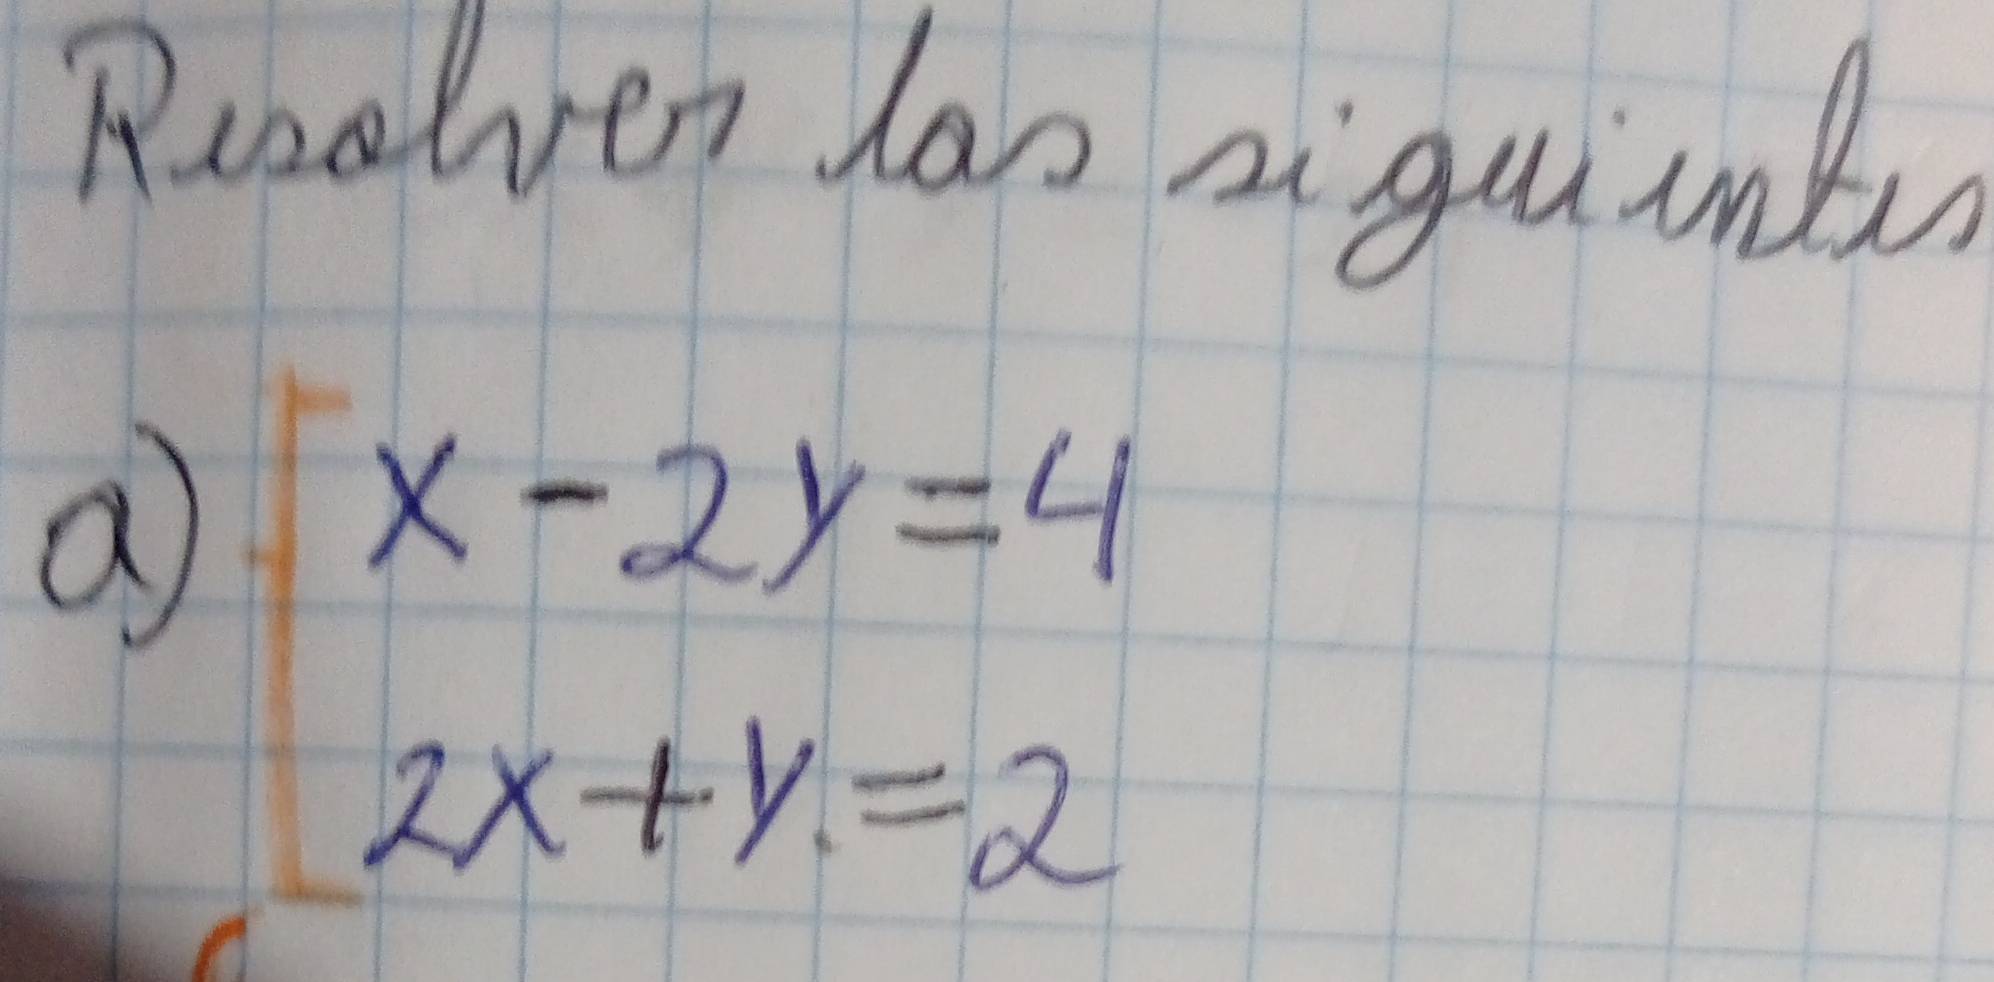 Resolver las siguientes
a) x - 2y = 4
2x + y = 2